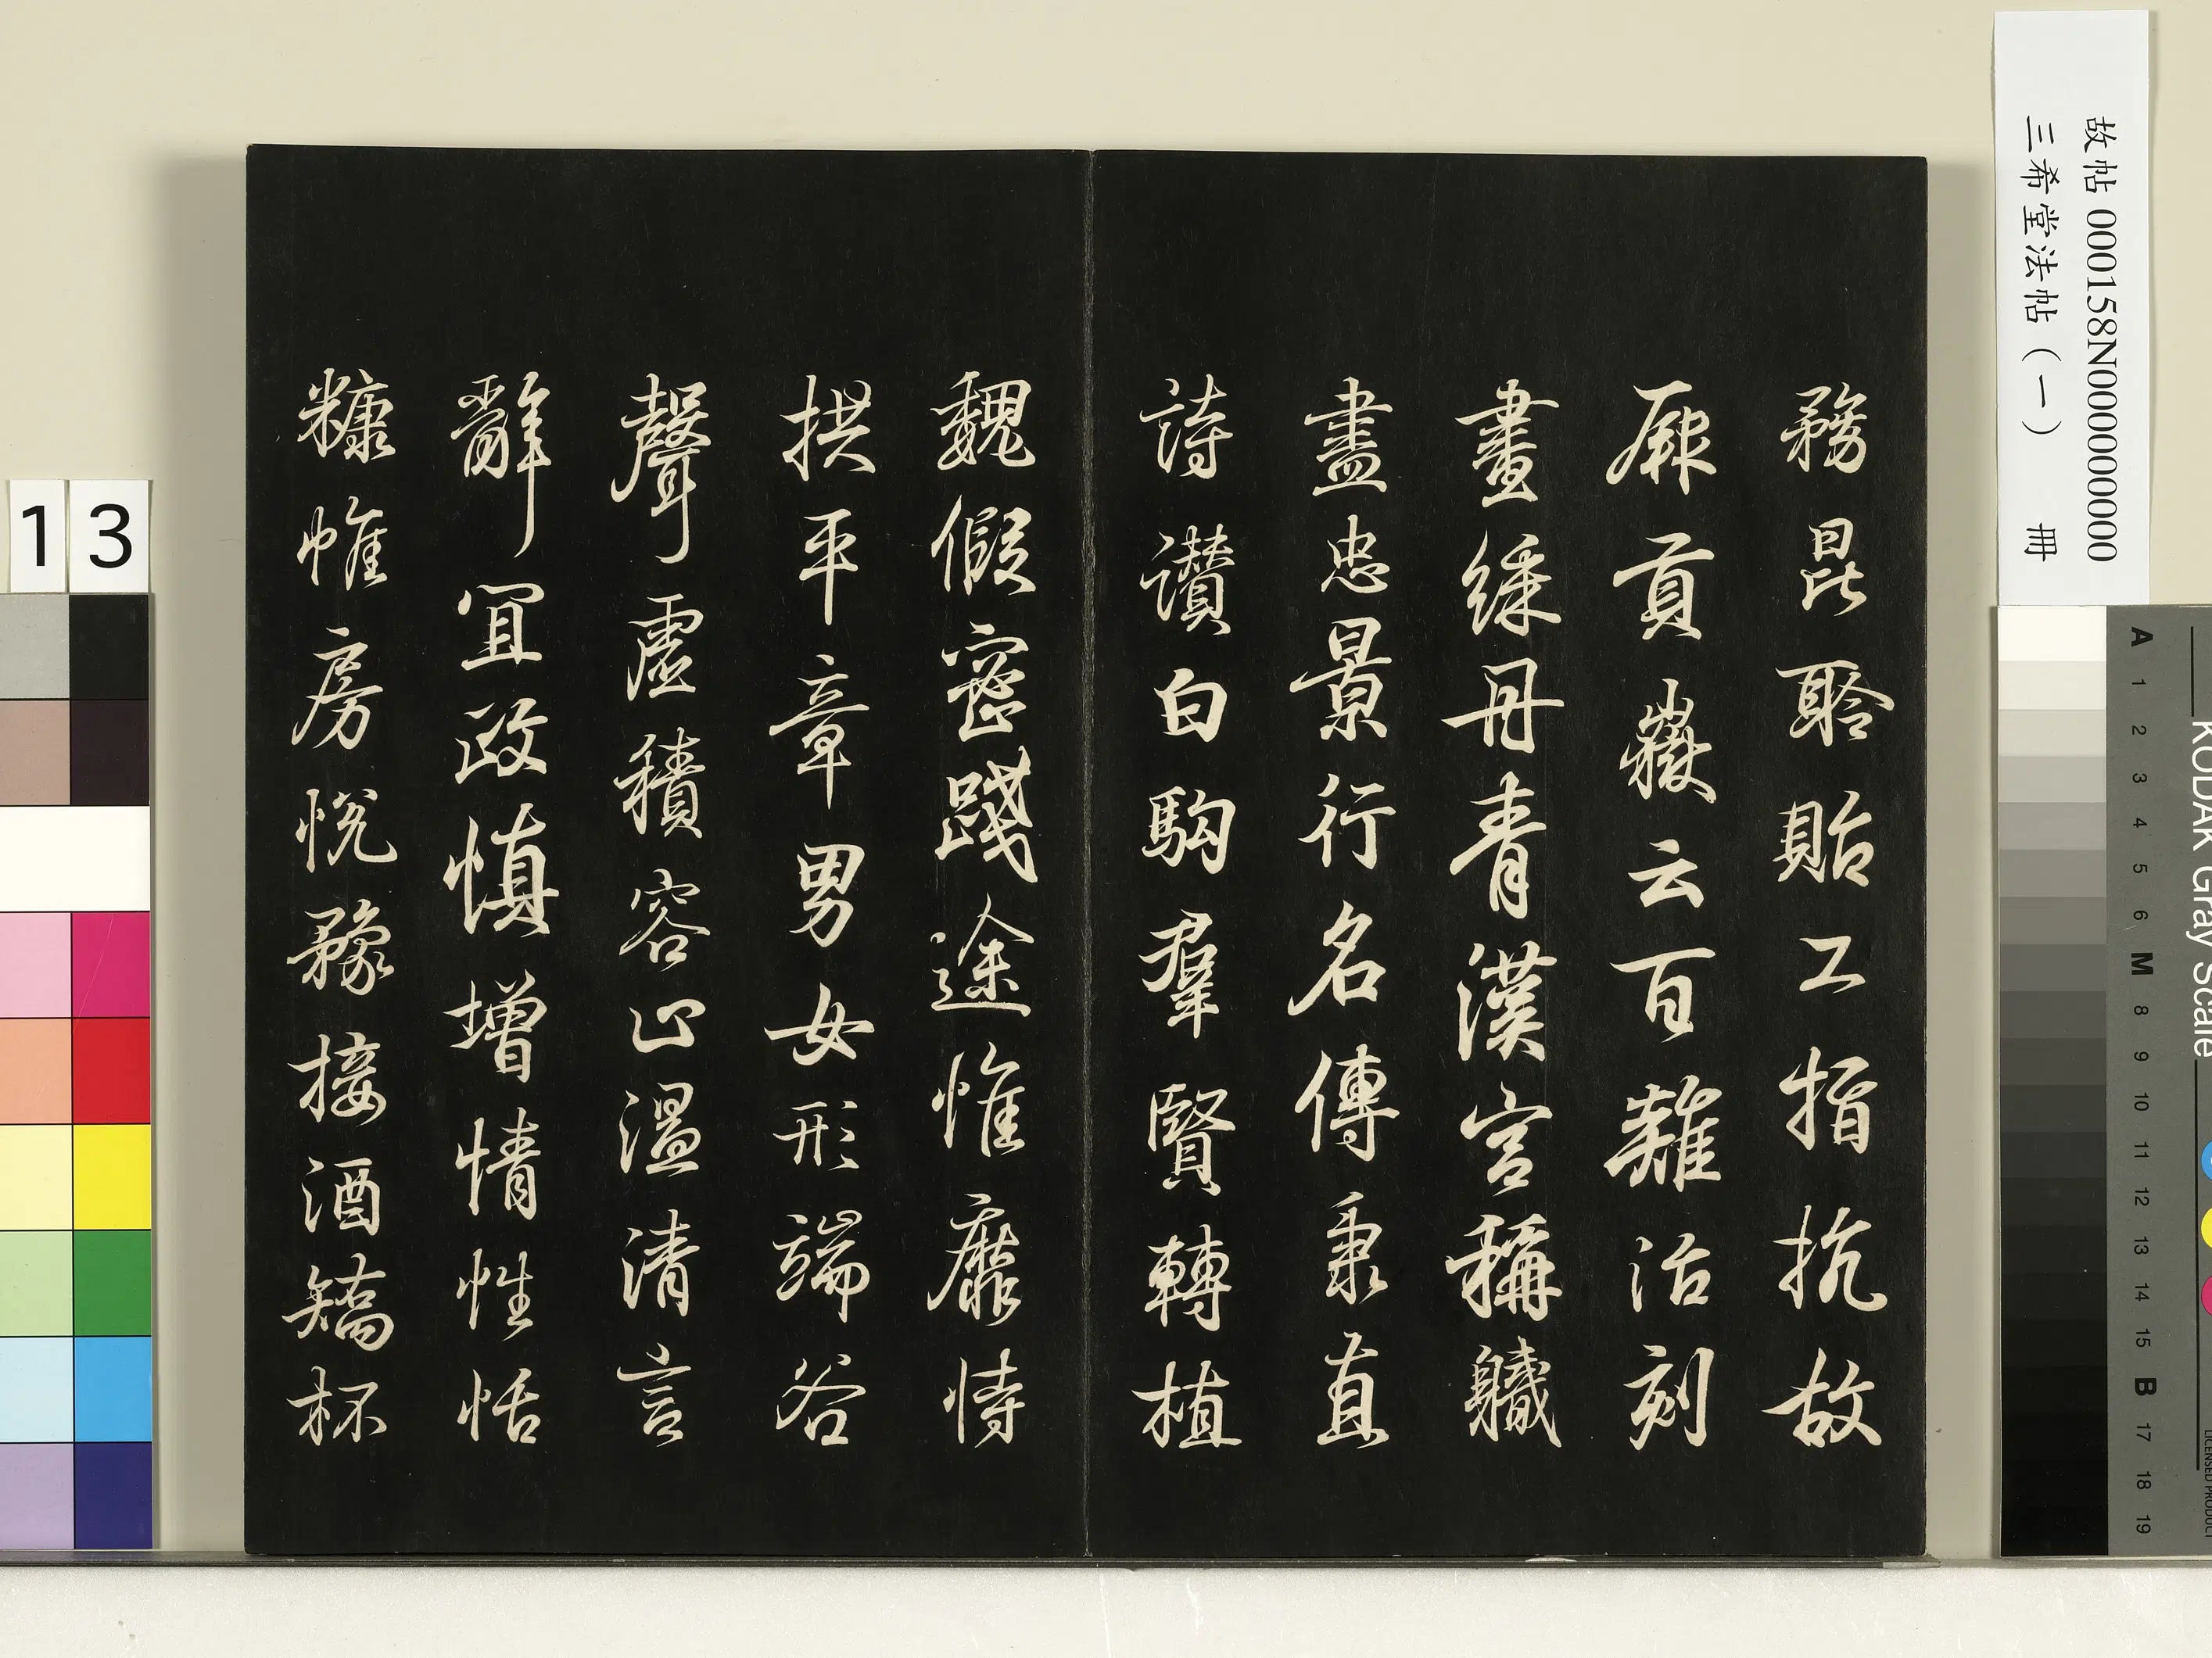 務昆聆貽工指抗故
厥貢嶽云百難活刻
畫綵丹青漢宫稱軄
盡忠景行名傳秉直
詩讚白駒羣賢轉植
魏假密踐途惟靡恃
拱平章男女形端谷
聲虛積容止温清言
辭宜政慎增情性恬
糠帷房悦豫接酒矯杯
故帖 000158N000000000
三希堂法帖（一） 冊
13
KODAK Gray Scale
A 1 2 3 4 5 6 M 8 9 10 11 12 13 14 15 B 17 18 19